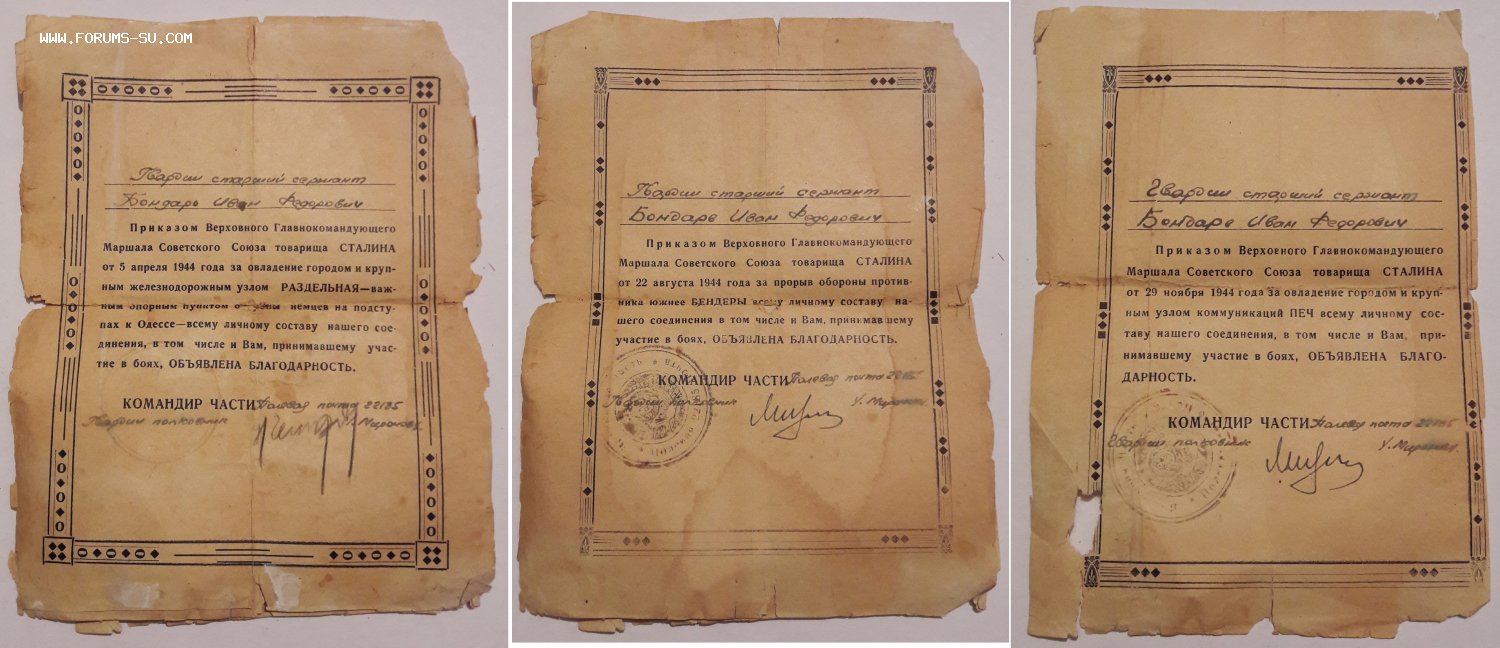 WWW.FORUMS-SU.COM
Гвардии старший сержант
Бондарь Иван Федорович
Приказом Верховного Главнокомандующего
Маршала Советского Союза товарища СТАЛИНА
от 5 апреля 1944 года за овладение городом и круп-
ным железнодорожным узлом РАЗДЕЛЬНАЯ—важ-
ным опорным пунктом обороны немцев на подсту-
пах к Одессе—всему личному составу нашего сое-
динения, в том числе и Вам, принимавшему учас-
тие в боях, ОБЪЯВЛЕНА БЛАГОДАРНОСТЬ.
КОМАНДИР ЧАСТИ Полевая почта 22185
Гвардии полковник
Гвардии старший сержант
Бондарь Иван Федорович
Приказом Верховного Главнокомандующего
Маршала Советского Союза товарища СТАЛИНА
от 22 августа 1944 года за прорыв обороны против-
ника южнее БЕНДЕРЫ всему личному составу на-
шего соединения в том числе и Вам, принимавшему
участие в боях, ОБЪЯВЛЕНА БЛАГОДАРНОСТЬ.
КОМАНДИР ЧАСТИ Полевая почта
Гвардии полковник
Гвардии старший сержант
Бондарь Иван Федорович
Приказом Верховного Главнокомандующего
Маршала Советского Союза товарища СТАЛИНА
от 29 ноября 1944 года за овладение городом и круп-
ным узлом коммуникаций ПЕЧ всему личному сос-
таву нашего соединения, в том числе и Вам, при-
нимавшему участие в боях, ОБЪЯВЛЕНА БЛАГО-
ДАРНОСТЬ.
КОМАНДИР ЧАСТИ Полевая почта
Гвардии полковник